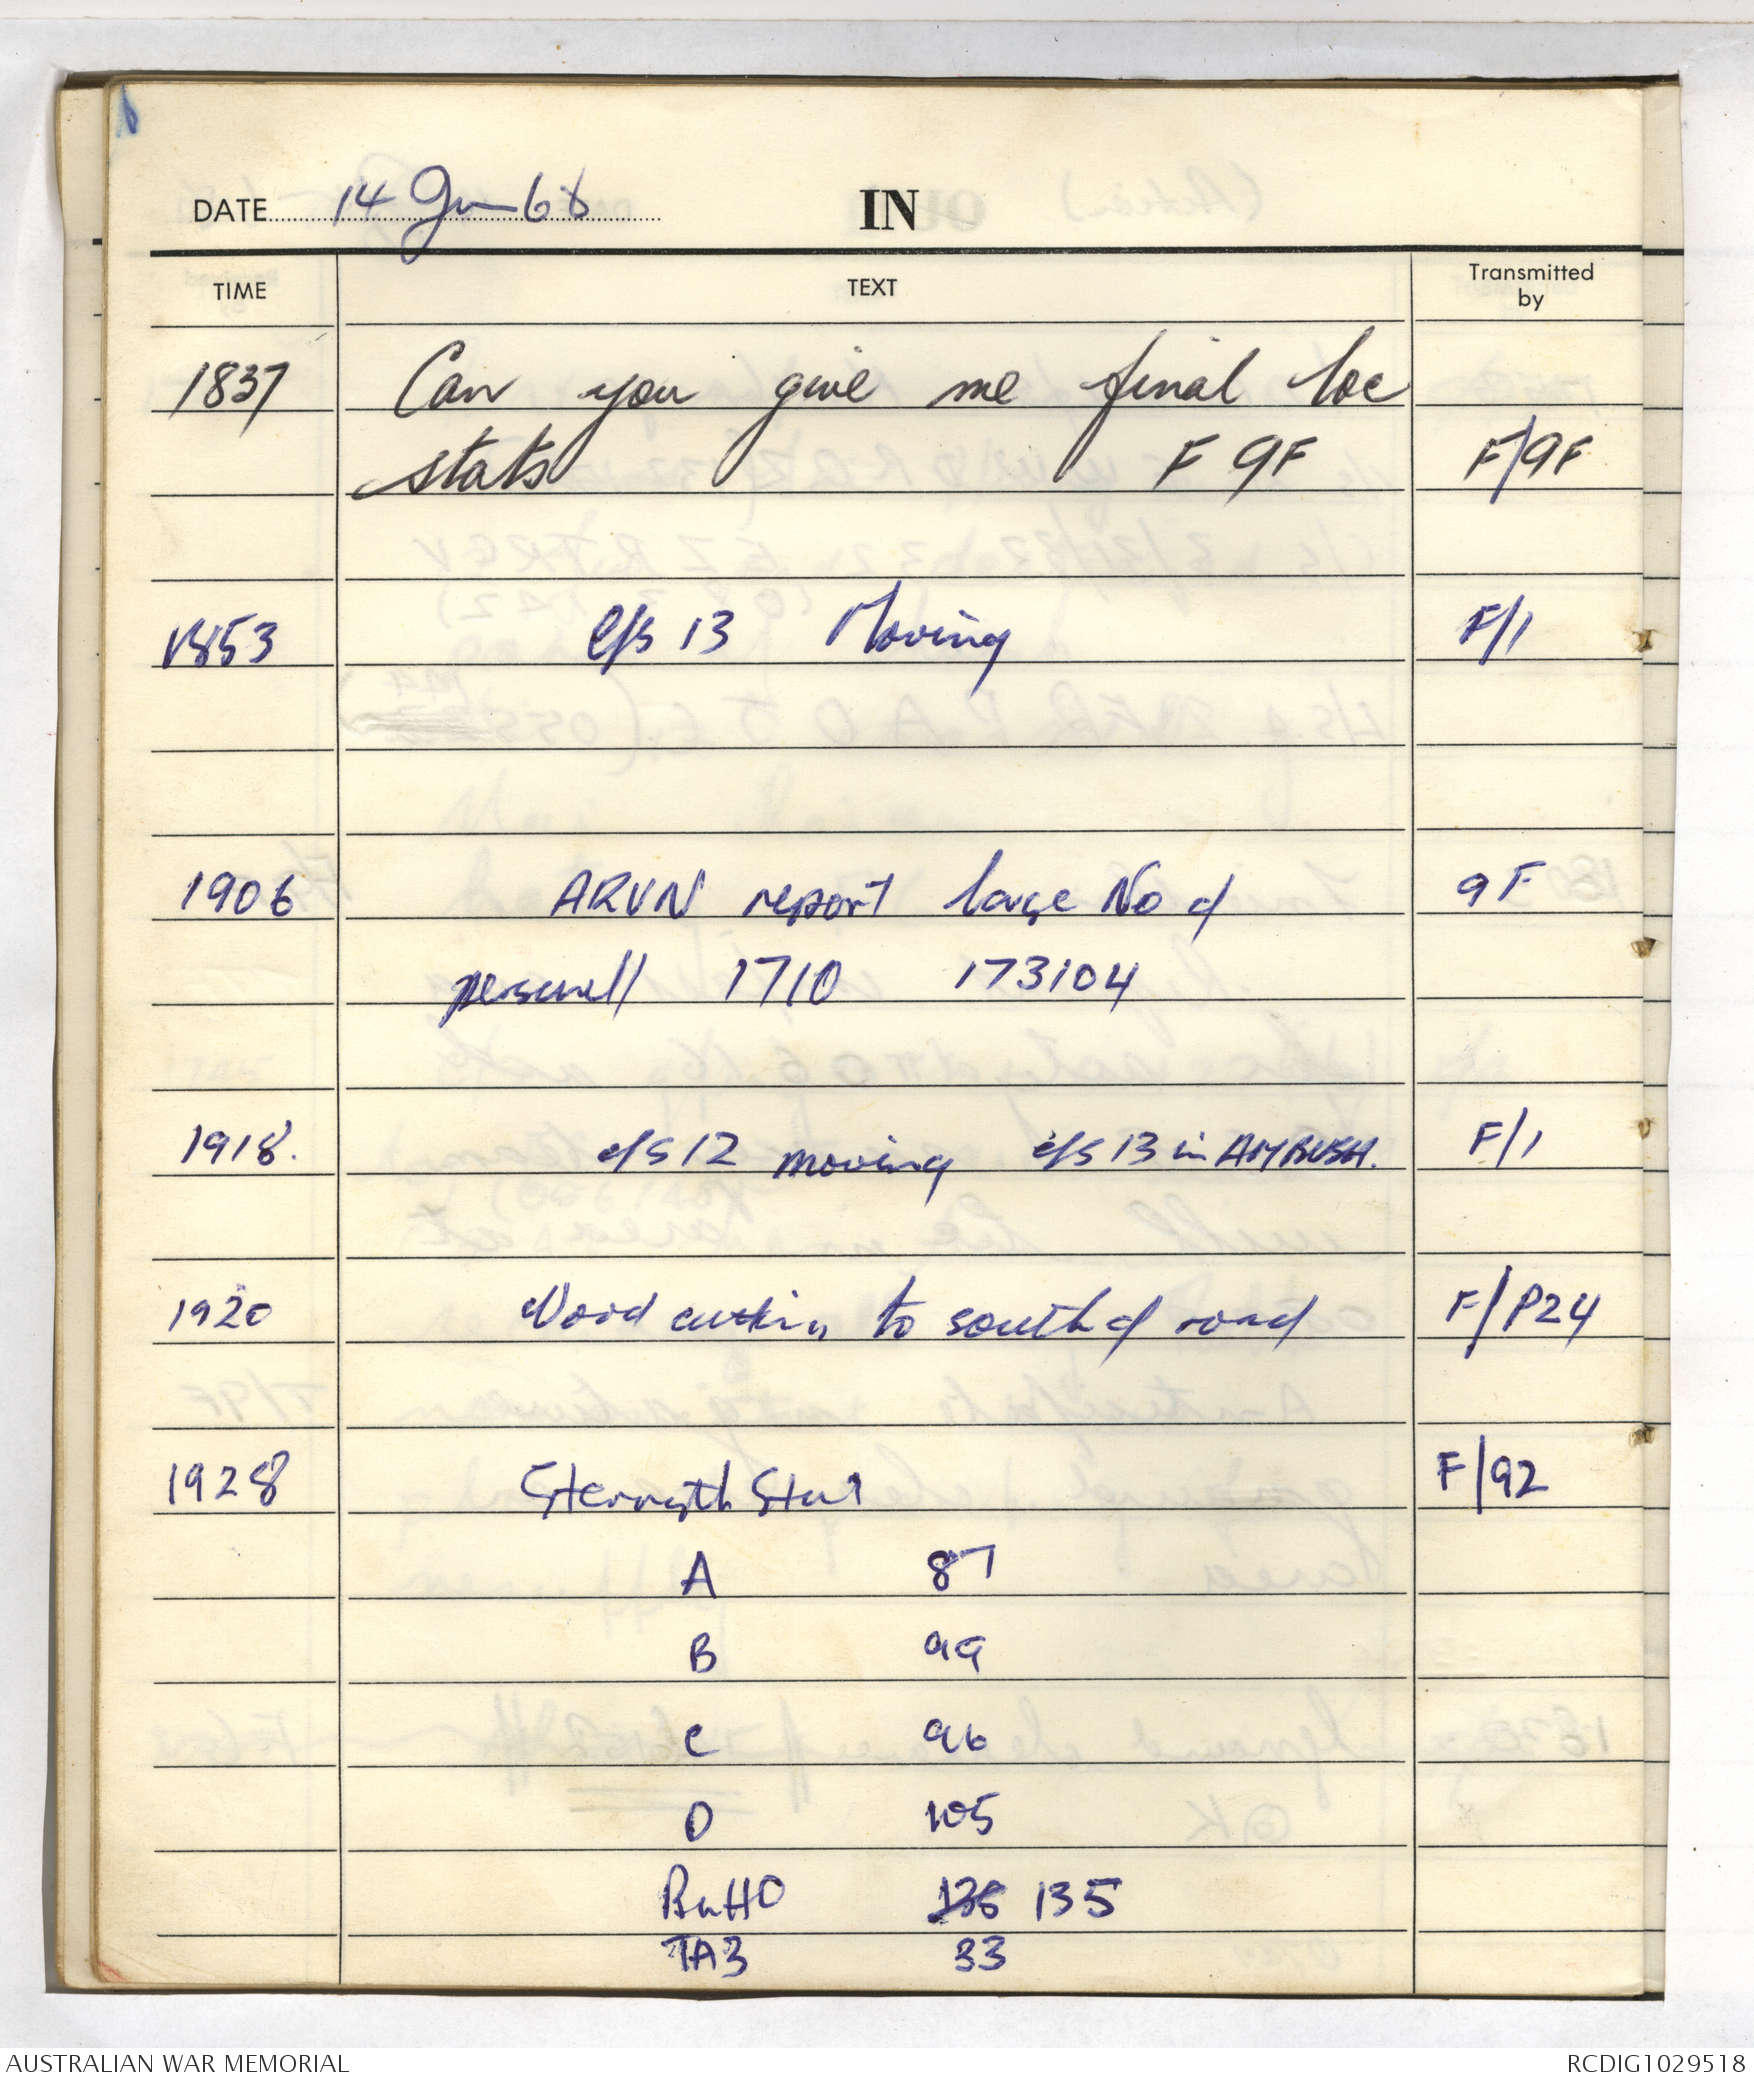 DATE 14 Jun 68 IN
TIME TEXT Transmitted by
1837 Can you give me final loc
stats F 9F F/9F
1853 c/s 13 Moving F/1
1906 ARVN report large No of 9F
personell 1710 173104
1918. c/s 12 moving c/s 13 in AMBUSH. F/1
1920 Wood cutting to south of road F/P24
1928 Strength Stat F/92
A 87
B 99
C 96
D 105
BnHQ 135
TA3 33
AUSTRALIAN WAR MEMORIAL RCDIG1029518